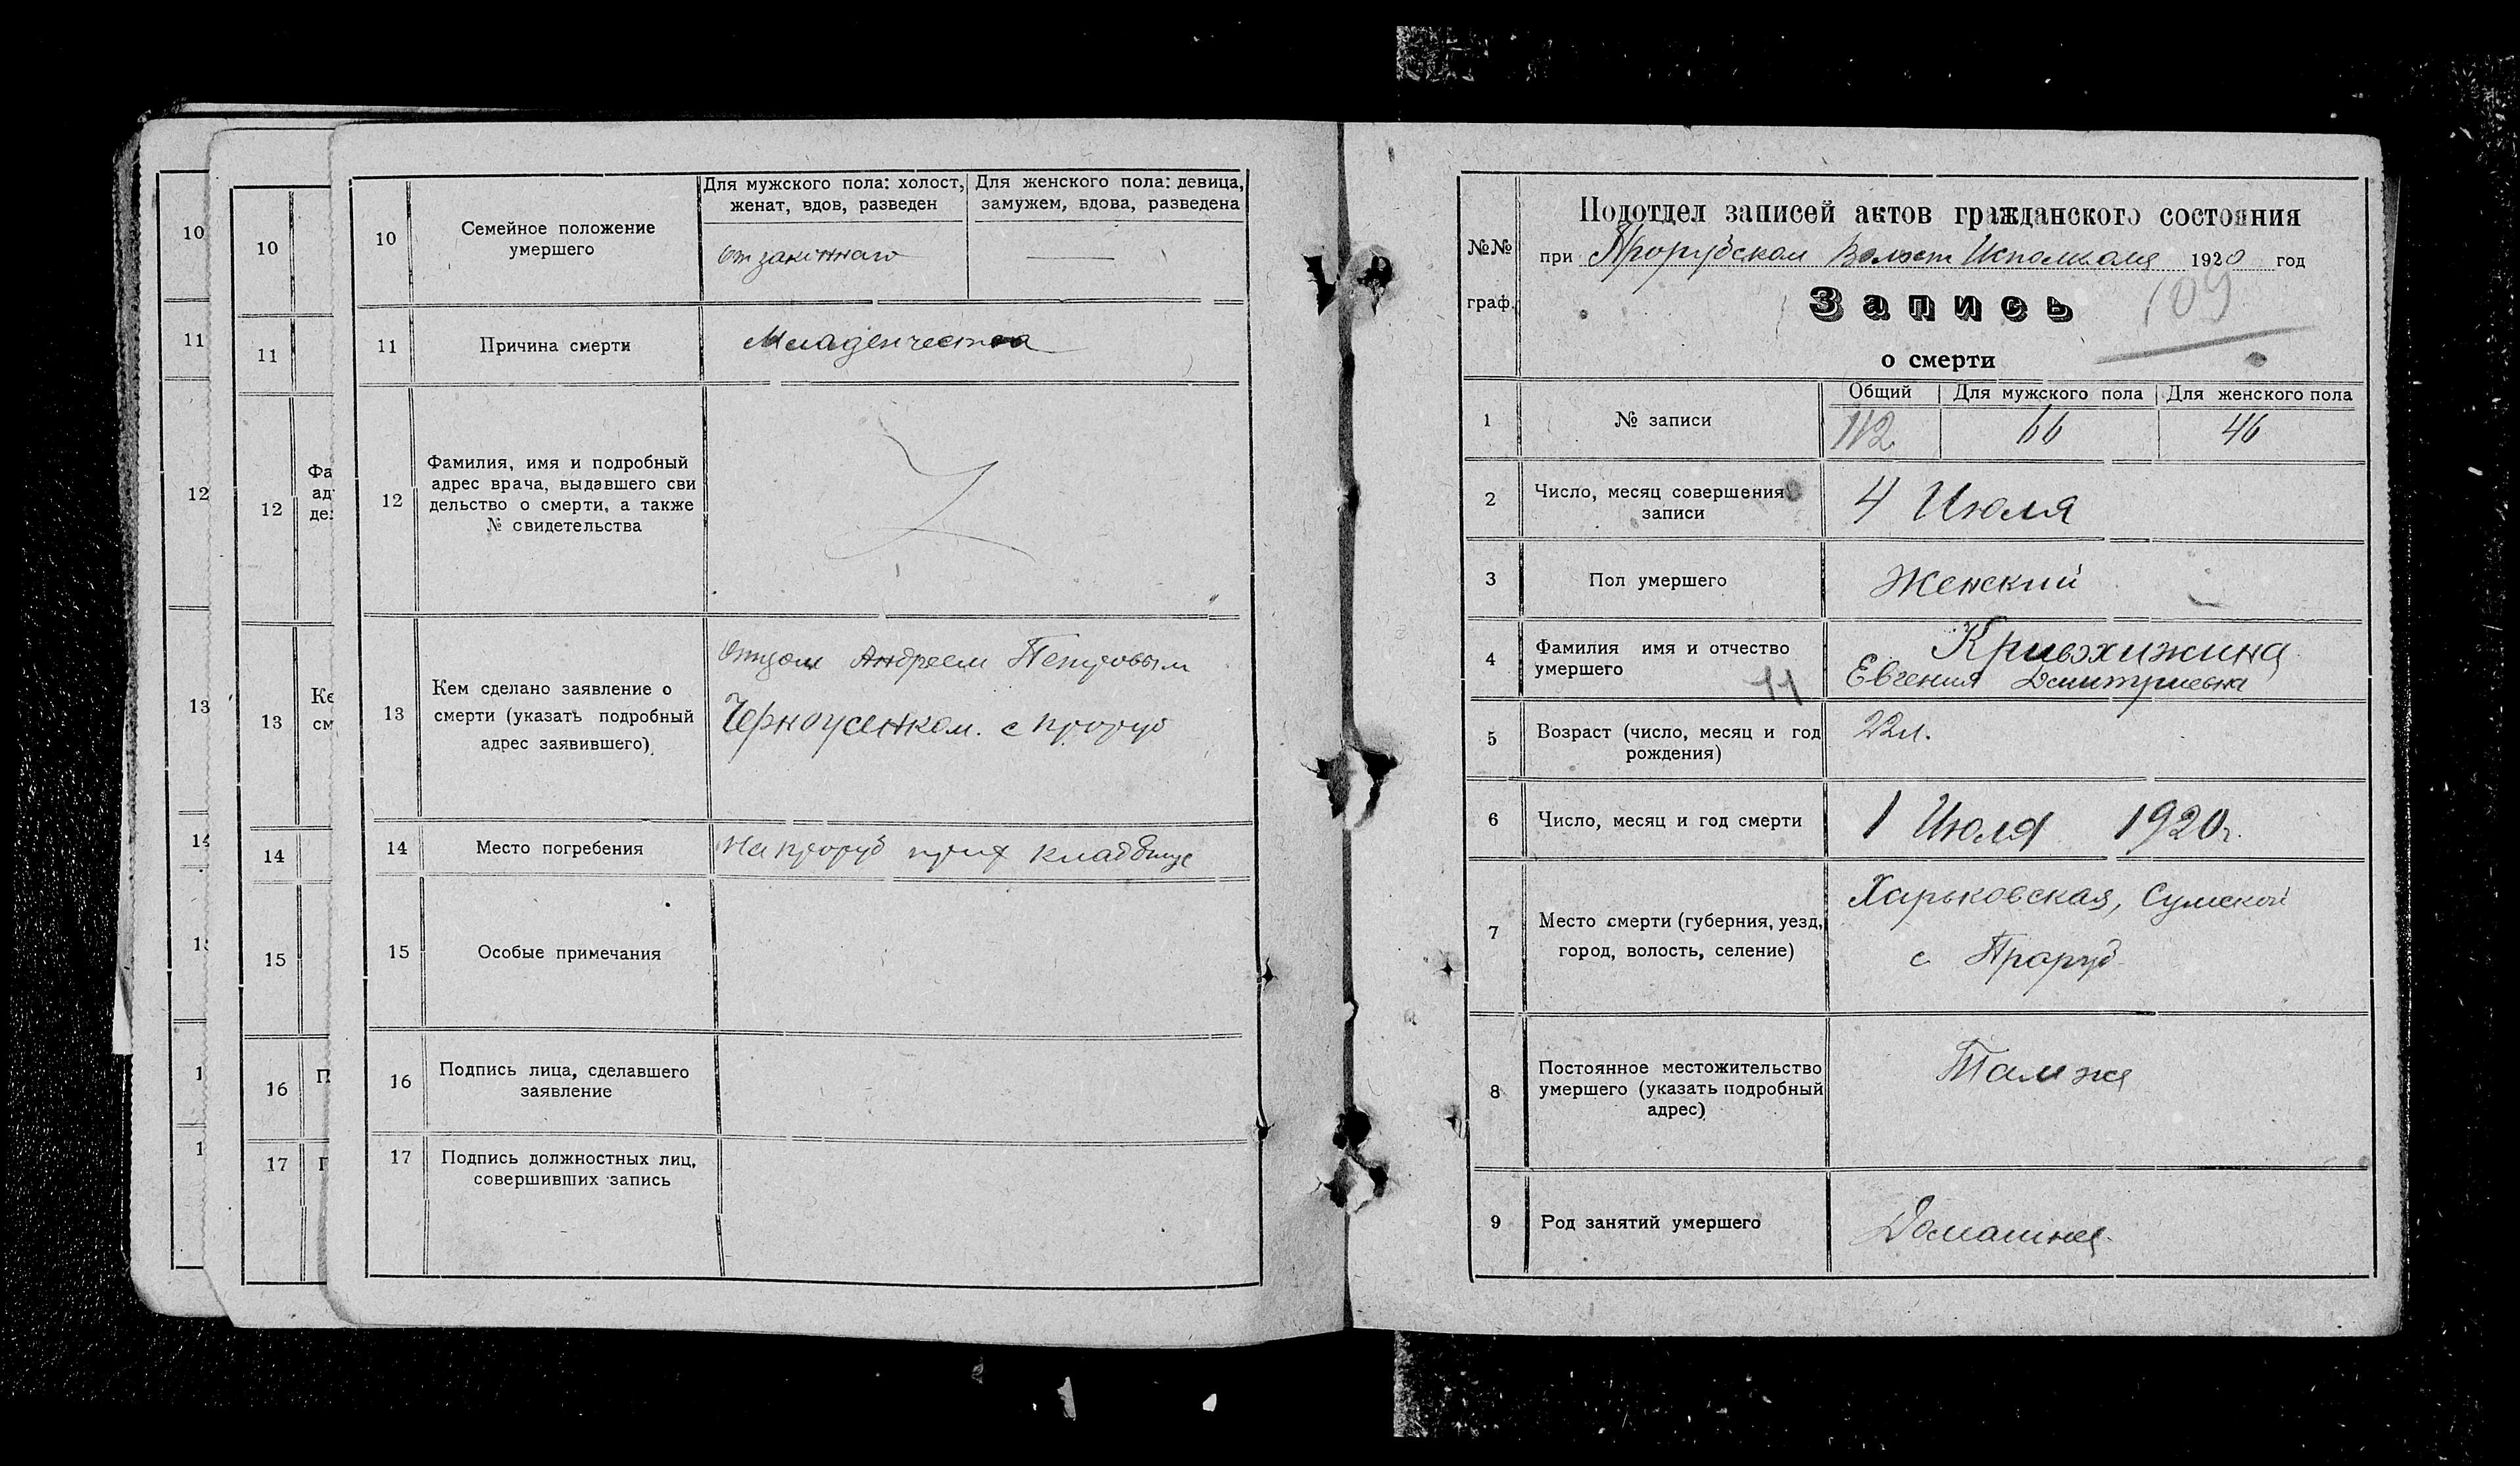 10
11
12
13
14
10
11
12
Фа
ад
де
13
Ке
см
14
15
16
П
17
10
Семейное положение
умершего
Для мужского пола: холост,
женат, вдов, разведен
Для женского пола: девица,
замужем, вдова, разведена
от законнаго
11
Причина смерти
Младенчества
12
Фамилия, имя и подробный
адрес врача, выдавшего сви
дельство о смерти, а также
№ свидетельства
13
Кем сделано заявление о
смерти (указать подробный
адрес заявившего)
Отцом Андреем Петровым
Черноусенком. с Проруб
14
Место погребения
На проруб прих кладбище
15
Особые примечания
16
Подпись лица, сделавшего
заявление
17
Подпись должностных лиц,
совершивших запись
№№
граф.
Подотдел записей актов гражданского состояния
при Прорубском Волост Исполкоме 1920 год
Запись
109
о смерти
1
№ записи
Общий
Для мужского пола
Для женского пола
112
66
46
2
Число, месяц совершения
записи
4 Июля
3
Пол умершего
Женский
4
Фамилия имя и отчество
умершего
11
Кривохижина
Евгения Дмитриевна
5
Возраст (число, месяц и год
рождения)
22л.
6
Число, месяц и год смерти
1 Июля 1920г.
7
Место смерти (губерния, уезд,
город, волость, селение)
Харьковская, Сумской
с Проруб
8
Постоянное местожительство
умершего (указать подробный
адрес)
Там же
9
Род занятий умершего
Домашнея